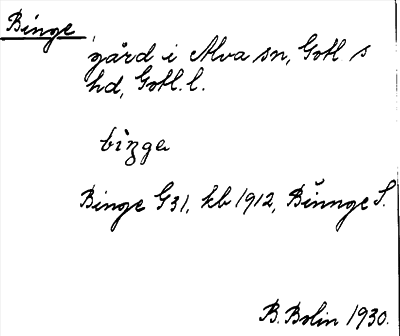 Binge,
gård i Alva sn, Gotl s
hd, Gotl. l.
bìŋge
Binge G31, kb 1912, Bĭnnge S.
B. Bolin 1930.